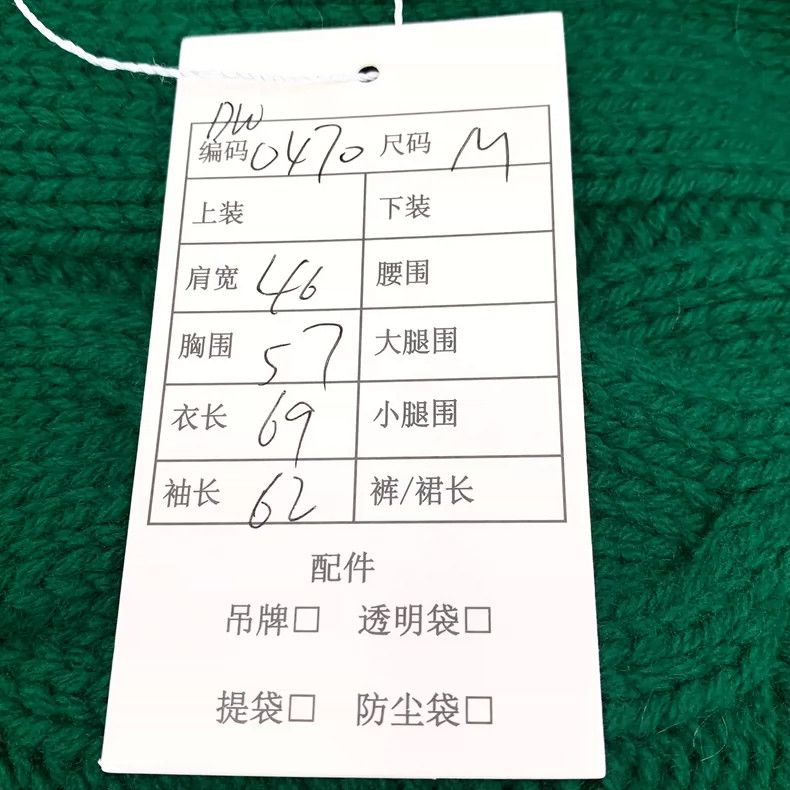 DW
编码0470 尺码 M
上装 下装
肩宽 46 腰围
胸围 57 大腿围
衣长 69 小腿围
袖长 62 裤/裙长
配件
吊牌□ 透明袋□
提袋□ 防尘袋□